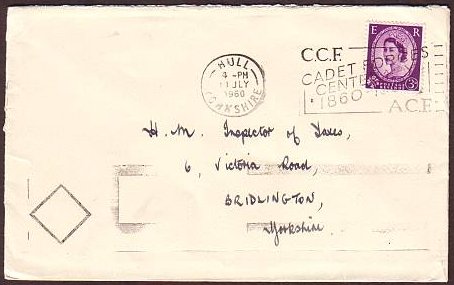 HULL
4 - PM
11 JLY
1960
YORKSHIRE
C.C.F.
CADET
CENTE
1860
A.C.F.
E R
3D
H. M. Inspector of Taxes,
6, Victoria Road,
BRIDLINGTON,
Yorkshire.